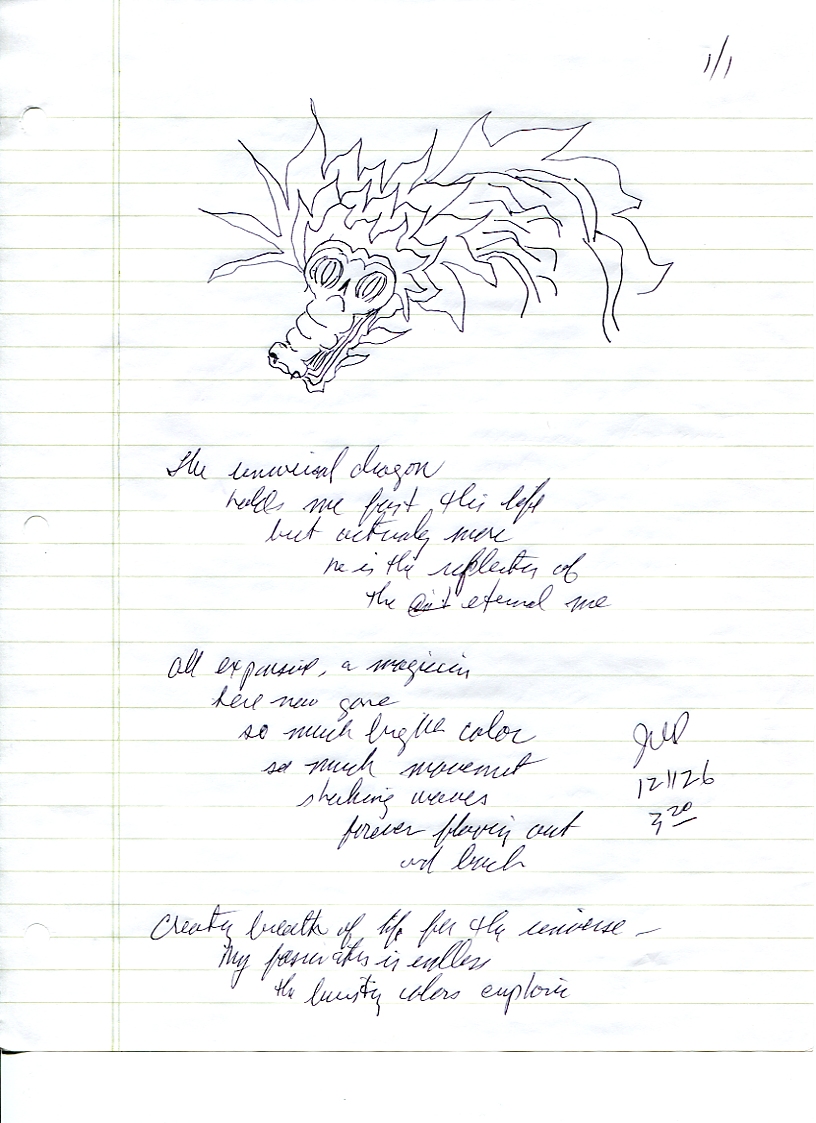 1/1
The universal dragon
holds me fast this life
but actually more
he is the reflection of
the eternal me
all expansive, a magician
here now gone
so much brighter color
so much movement
shaking waves
forever flowing out
and back
JWD
12/1126
3 20
Creating breath of life for the universe –
My fascination is endless
the bursting colors